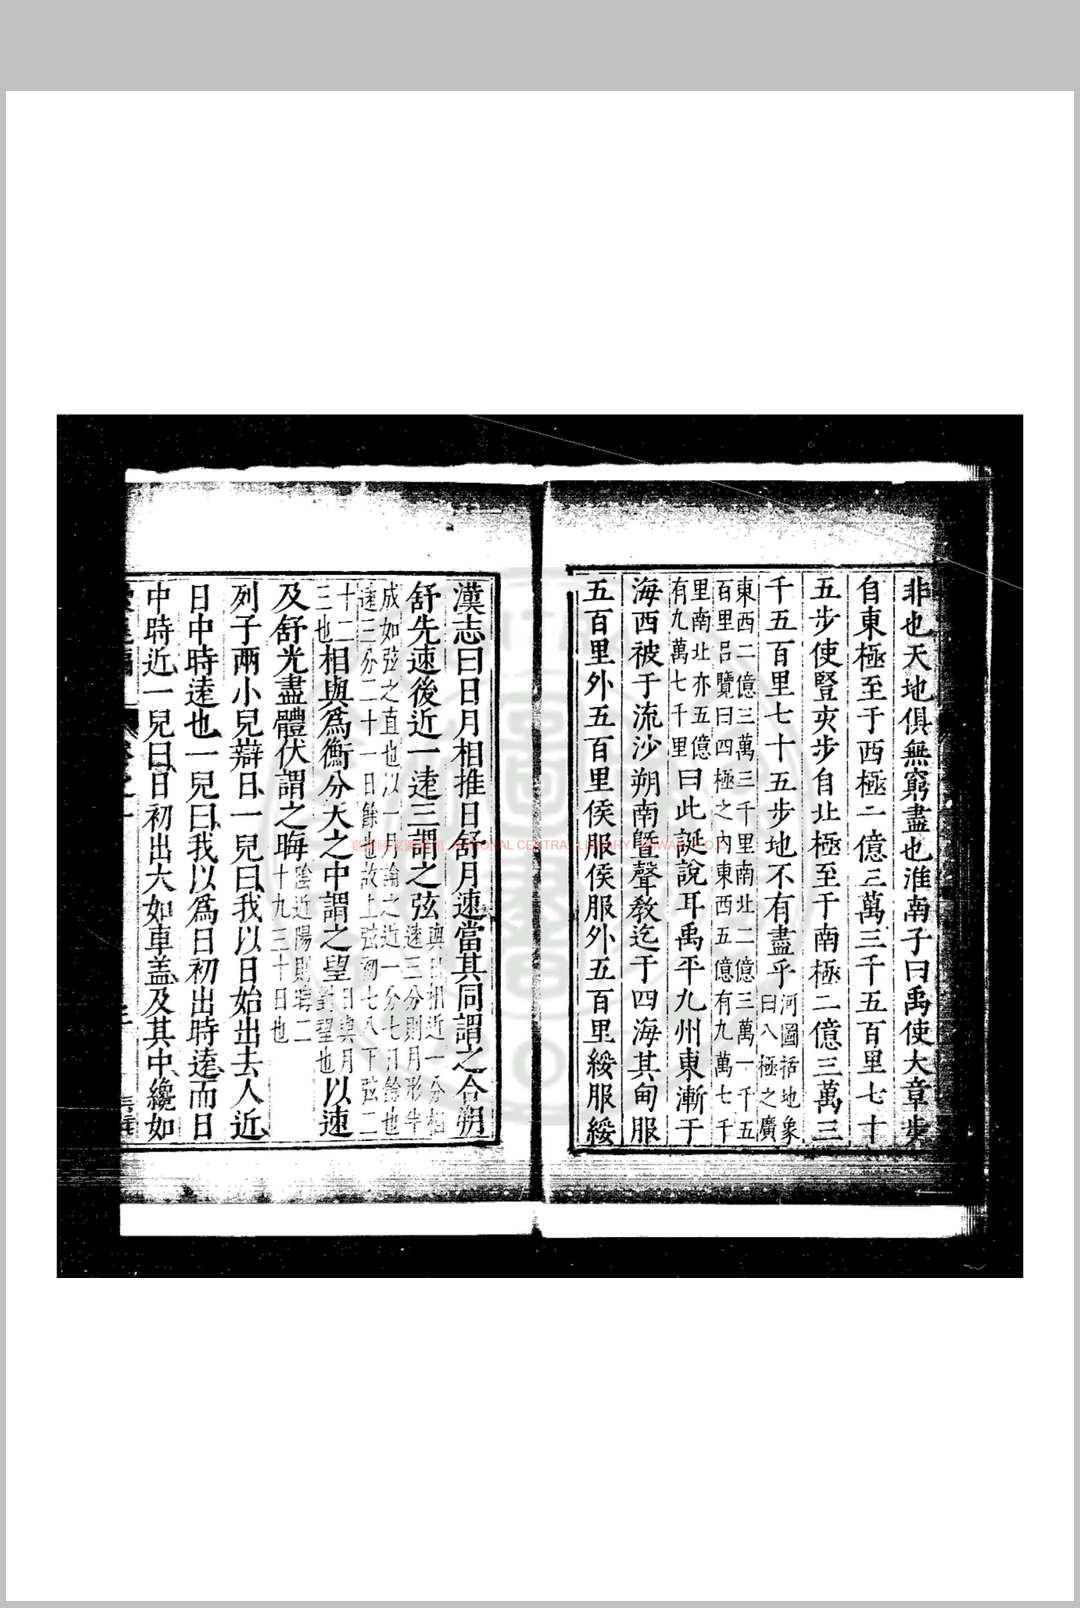 非也天地俱無窮盡也淮南子曰禹使大章步
自東極至于西極二億三萬三千五百里七十
五步使豎亥步自北極至于南極二億三萬三
千五百里七十五步地不有盡乎河圖括地象曰八極之廣
東西二億三萬三千里南北二億三萬一千五百里呂覽曰四極之內東西五億有九萬七千
里南北亦五億有九萬七千里曰此誕說耳禹平九州東漸于
海西被于流沙朔南曁聲教迄于四海其甸服
五百里外五百里侯服侯服外五百里綏服綏
漢志曰日月相推日舒月速當其同謂之合朔
舒先速後近一遠三謂之弦與日相近一分相遠三分則月形半
成如弦之直也以一月論之近一分七日餘也遠三分二十一日餘也故上弦初七八下弦二
十二三也相與爲衡分天之中謂之望日與月對望也以速
及舒光盡體伏謂之晦陰近陽則晦二十九三十日也
列子兩小兒辯日一兒曰我以日始出去人近
日中時遠也一兒曰我以爲日初出時遠而日
中時近一兒曰日初出大如車蓋及其中纔如
NATIONAL CENTRAL LIBRARY, TAIWAN, R.O.C